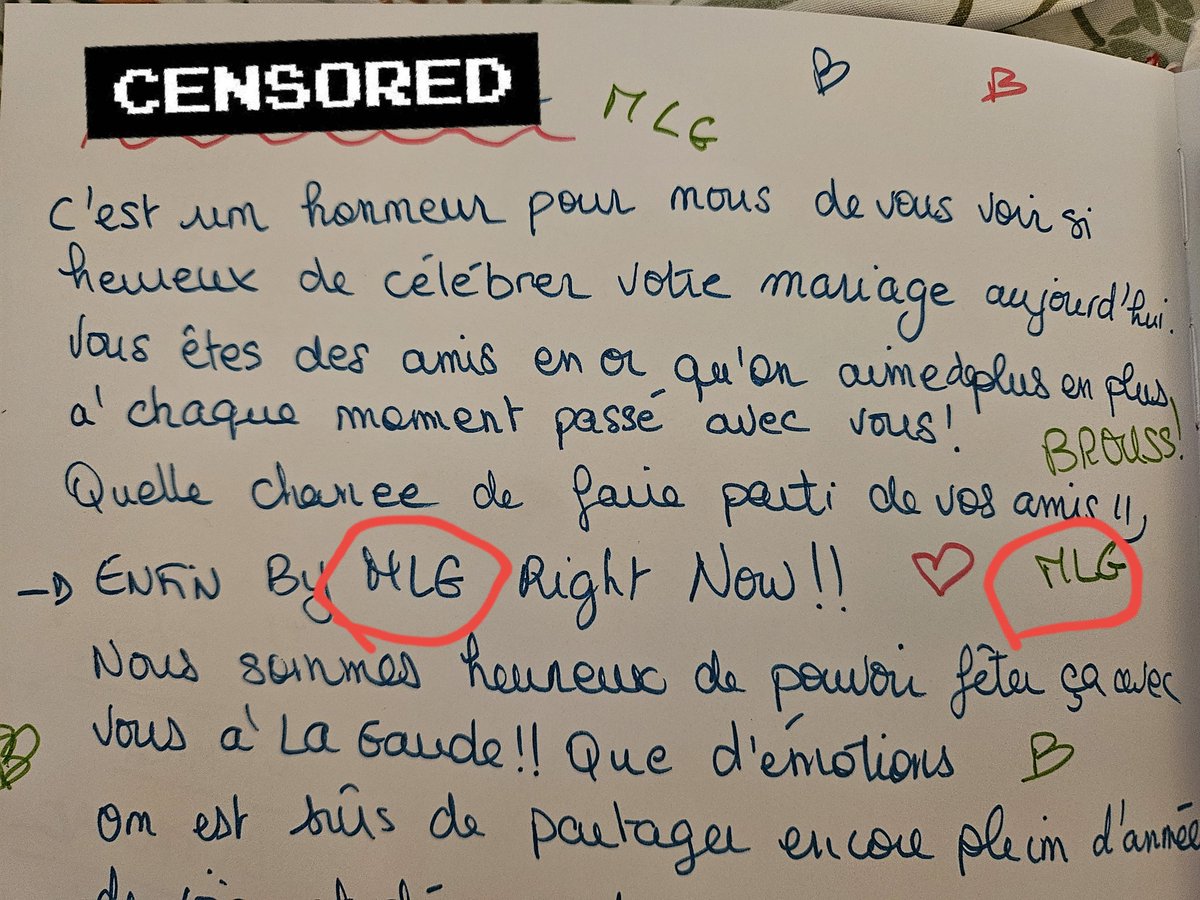 CENSORED MLG B B
c'est un honneur pour nous de vous voir si
heureux de célébrer votre mariage aujourd'hui.
Vous êtes des amis en or qu'on aime de plus en plus
à chaque moment passé avec vous!
BROUSS!
Quelle chance de faire parti de vos amis !!
→ ENFIN By MLG Right Now!! ♡ MLG
Nous sommes heureux de pouvoir fêter ça avec
vous à La Gaude!! Que d'émotions B
B
on est sûs de partager encore plein d'année